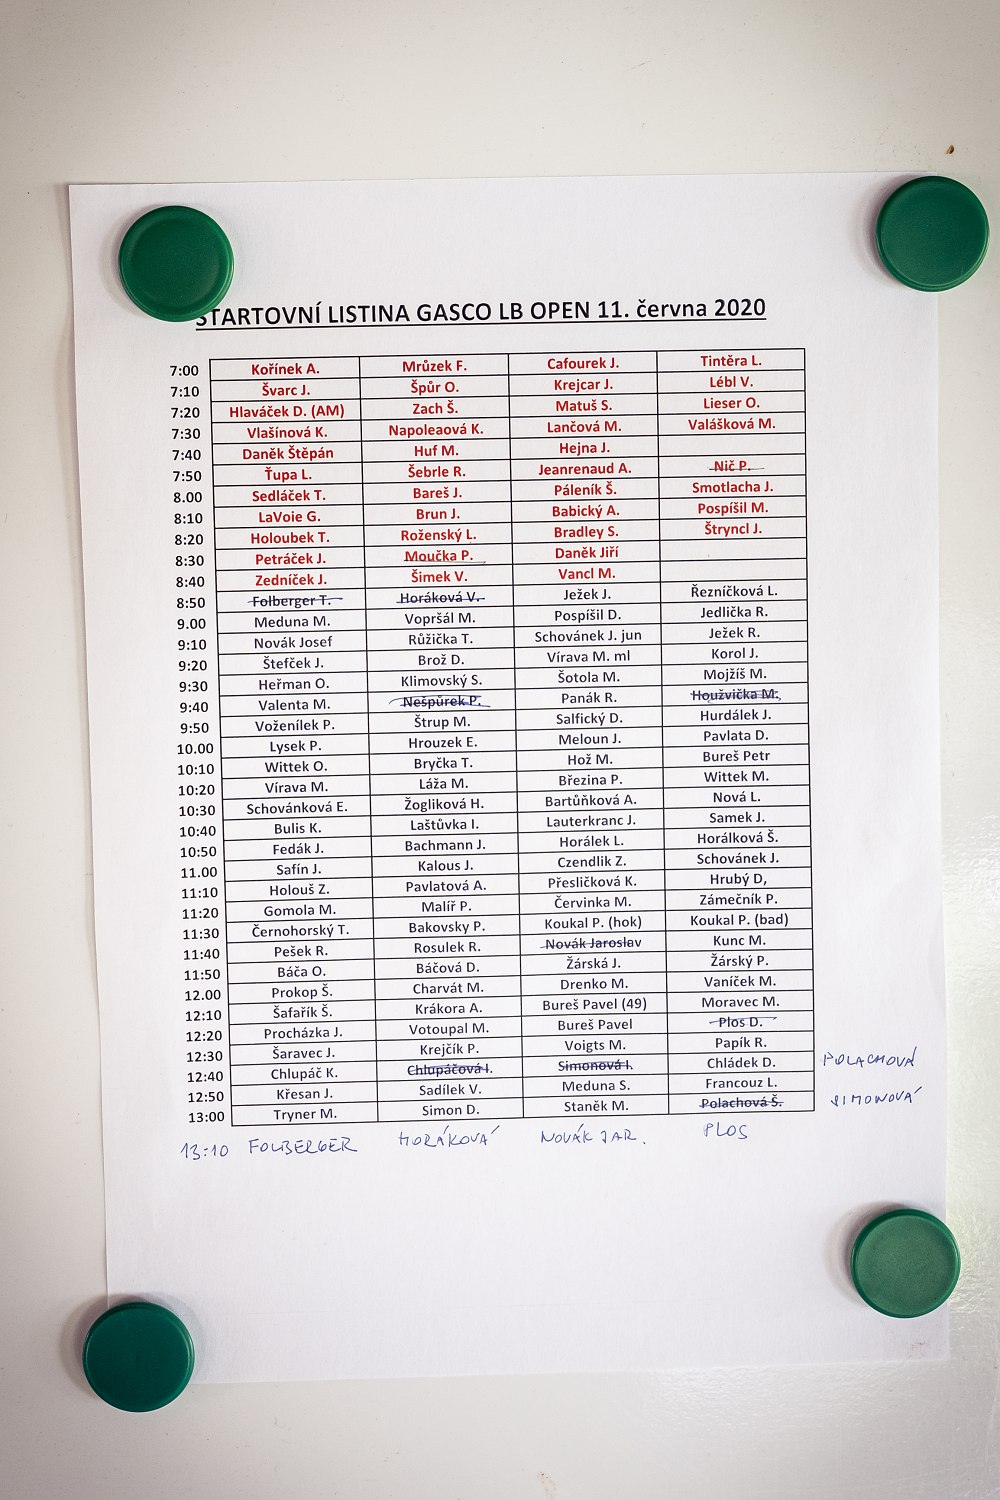 STARTOVNÍ LISTINA GASCO LB OPEN 11. června 2020
7:00 Kořínek A. Mrůzek F. Cafourek J. Tintěra L.
7:10 Švarc J. Špůr O. Krejcar J. Lébl V.
7:20 Hlaváček D. (AM) Zach Š. Matuš S. Lieser O.
7:30 Vlašínová K. Napoleaová K. Lančová M. Valášková M.
7:40 Daněk Štěpán Huf M. Hejna J.
7:50 Ťupa L. Šebrle R. Jeanrenaud A. Nič P.
8.00 Sedláček T. Bareš J. Páleník Š. Smotlacha J.
8:10 LaVoie G. Brun J. Babický A. Pospíšil M.
8:20 Holoubek T. Roženský L. Bradley S. Štryncl J.
8:30 Petráček J. Moučka P. Daněk Jiří
8:40 Zedníček J. Šimek V. Vancl M.
8:50 Folberger T. Horáková V. Ježek J. Řezníčková L.
9.00 Meduna M. Vopršál M. Pospíšil D. Jedlička R.
9:10 Novák Josef Růžička T. Schovánek J. jun Ježek R.
9:20 Štefček J. Brož D. Vírava M. ml Korol J.
9:30 Heřman O. Klimovský S. Šotola M. Mojžíš M.
9:40 Valenta M. Nešpůrek P. Panák R. Houžvička M.
9:50 Voženílek P. Štrup M. Salfický D. Hurdálek J.
10.00 Lysek P. Hrouzek E. Meloun J. Pavlata D.
10:10 Wittek O. Bryčka T. Hož M. Bureš Petr
10:20 Vírava M. Láža M. Březina P. Wittek M.
10:30 Schovánková E. Žogliková H. Bartůňková A. Nová L.
10:40 Bulis K. Laštůvka I. Lauterkranc J. Samek J.
10:50 Fedák J. Bachmann J. Horálek L. Horálková Š.
11.00 Safín J. Kalous J. Czendlik Z. Schovánek J.
11:10 Holouš Z. Pavlatová A. Přesličková K. Hrubý D,
11:20 Gomola M. Malíř P. Červinka M. Zámečník P.
11:30 Černohorský T. Bakovsky P. Koukal P. (hok) Koukal P. (bad)
11:40 Pešek R. Rosulek R. Novák Jaroslav Kunc M.
11:50 Báča O. Báčová D. Žárská J. Žárský P.
12.00 Prokop Š. Charvát M. Drenko M. Vaníček M.
12:10 Šafařík Š. Krákora A. Bureš Pavel (49) Moravec M.
12:20 Procházka J. Votoupal M. Bureš Pavel Plos D.
12:30 Šaravec J. Krejčík P. Voigts M. Papík R.
12:40 Chlupáč K. Chlupáčová I. Simonová I. Chládek D. POLACHOVÁ
12:50 Křesan J. Sadílek V. Meduna S. Francouz L.
13:00 Tryner M. Simon D. Staněk M. Polachová Š. SIMONOVÁ
13:10 FOLBERGER HORÁKOVÁ NOVÁK JAR. PLOS